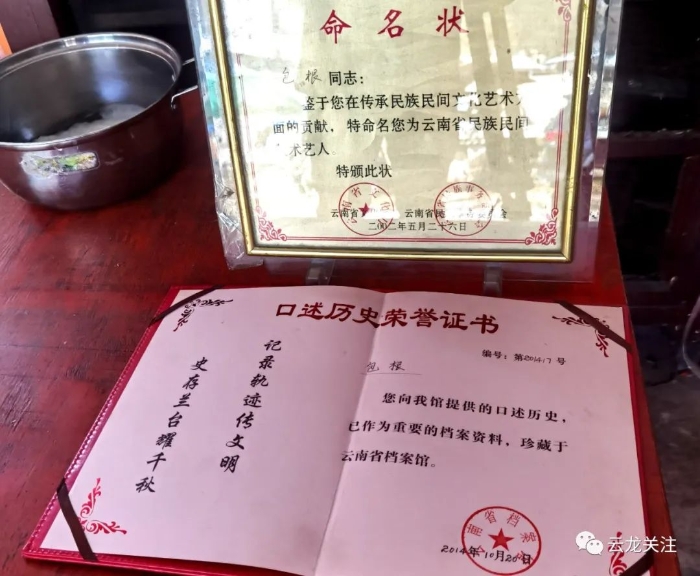 命名状
包根同志：
鉴于您在传承民族民间文化艺术方
面的贡献，特命名您为云南省民族民间
术艺人
特颁此状
云南省
云南省民
二〇〇二年五月二十六日
口述历史荣誉证书
记录轨迹传文明
史存兰台耀千秋
编号：第201417号
包根
您向我馆提供的口述历史，
已作为重要的档案资料，珍藏于
云南省档案馆。
云南省档案馆
2014年10月20日
云龙关注